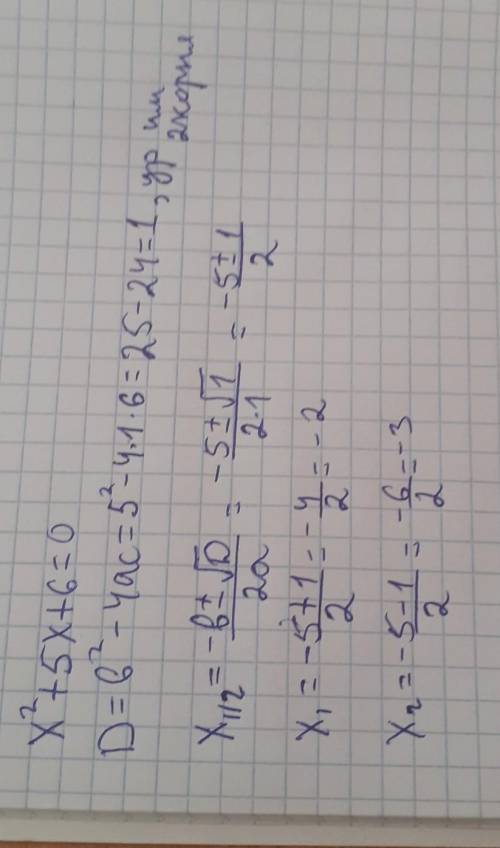 x² + 5x + 6 = 0
D = b² - 4ac = 5² - 4·1·6 = 25 - 24 = 1, ур им 2 корня
x₁/₂ = (-b ± √D)/2a = (-5 ± √1)/2·1 = (-5 ± 1)/2
x₁ = (-5 + 1)/2 = -4/2 = -2
x₂ = (-5 - 1)/2 = -6/2 = -3